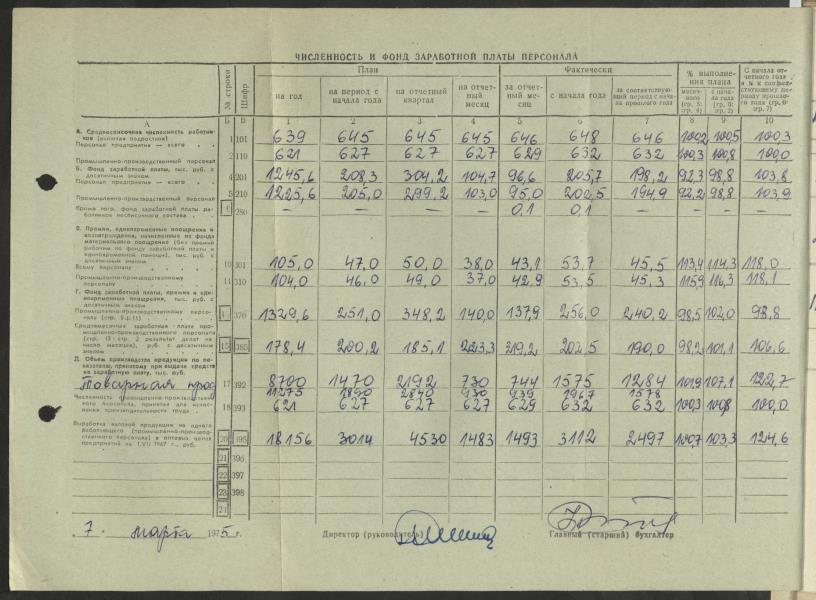 ЧИСЛЕННОСТЬ И ФОНД ЗАРАБОТНОЙ ПЛАТЫ ПЕРСОНАЛА
№ строки Шифр План Фактически % выполнения плана С начала отчетного года в % к соответствующему периоду прошлого года (гр. 6: гр. 7)
на год на период с начала года на отчетный квартал на отчетный месяц за отчетный месяц с начала года за соответствующий период с начала прошлого года месячного (гр. 5: гр. 4) с начала года (гр. 6: гр. 2)
А Б В 1 2 3 4 5 6 7 8 9 10
А. Среднесписочная численность работников (включая подростков)
Персонал предприятия — всего 1 101 639 645 645 645 646 648 646 100,2 100,5 100,3
Промышленно-производственный персонал 2 110 621 627 627 627 629 632 632 100,3 100,8 100,0
Б. Фонд заработной платы, тыс. руб. с десятичным знаком
Персонал предприятия — всего 4 201 1245,6 208,3 304,2 104,7 96,6 205,7 198,2 92,3 98,8 103,8
Промышленно-производственный персонал 5 210 1225,6 205,0 299,2 103,0 95,0 202,5 194,9 92,2 98,8 103,9
Кроме того, фонд заработной платы работников несписочного состава 280 — — — — 0,1 0,1 — — — —
В. Премии, единовременные поощрения и вознаграждения, начисленные из фонда материального поощрения (без премий рабочим по фонду заработной платы и единовременной помощи), тыс. руб. с десятичным знаком
Всему персоналу 10 301 105,0 47,0 50,0 38,0 43,1 53,7 45,5 113,4 114,3 118,0
Промышленно-производственному персоналу 11 310 104,0 46,0 49,0 37,0 42,9 53,5 45,3 115,9 116,3 118,1
Г. Фонд заработной платы, премии и единовременные поощрения, тыс. руб. с десятичным знаком
Промышленно-производственному персоналу (стр. 5+11) 376 1329,6 251,0 348,2 140,0 137,9 256,0 240,2 98,5 102,0
Среднемесячная заработная плата промышленно-производственного персонала
15 385 178,4 200,2 185,1 223,3 219,2 202,5 190,0 98,2 101,1 106,6
Д. Объем производства продукции по показателю, принятому при выдаче средств на заработную плату, тыс. руб.
Товарная прод 17 392 8700 1470 2192 730 744 1575 1284 101,9 107,1 122,7
11275 1890 2840 930 939 1967 1578
Численность промышленно-производственного персонала, принятая для исчисления производительности труда 18 393 621 627 627 627 629 632 632 100,3 100,8 100,0
Выработка валовой продукции на одного работающего (промышленно-производственного персонала) в оптовых ценах предприятий на 1.VII 1967 г., руб. 20 395 18156 3014 4530 1483 1493 3112 2497 100,7 103,3 124,6
21 396
22 397
23 398
24
7. марта 1975 г. Директор (руководитель) Главный (старший) бухгалтер